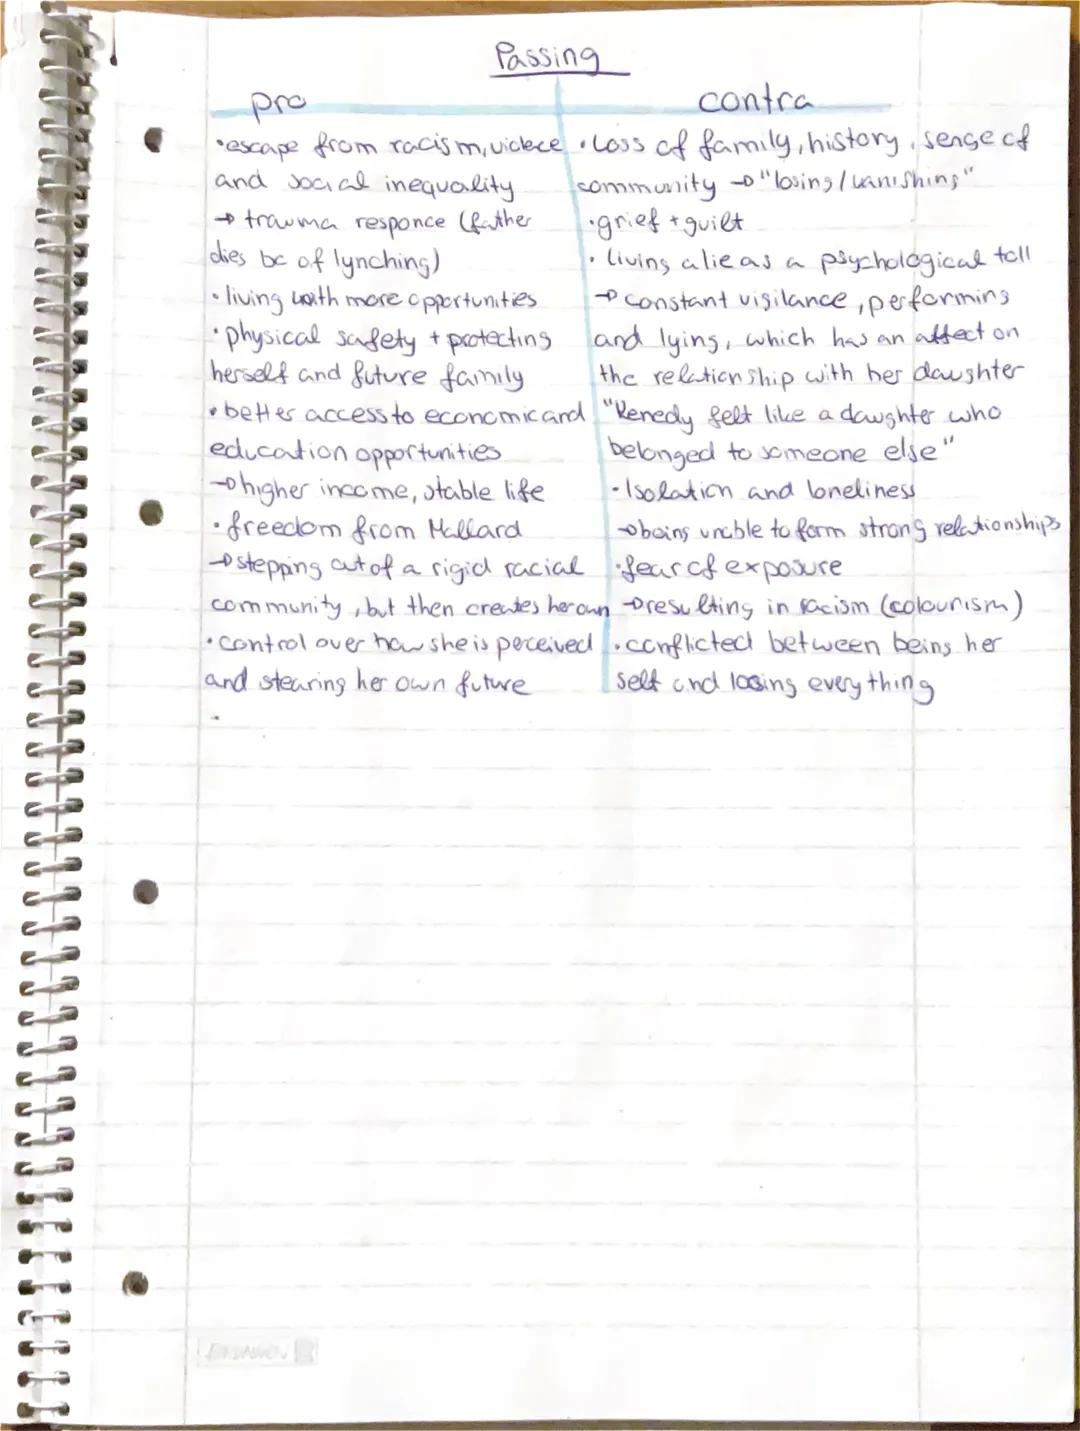 Passing
pro
•escape from racism, violece
and social inequality
→ trauma responce (father
dies bc of lynching)
• living with more opportunities
• physical safety + protecting
herself and future family
• better access to economic and
education opportunities
→ higher income, stable life
• freedom from Mallard
→ stepping out of a rigid racial
community, but then creates her own
• control over how she is perceived
and stearing her own future
•
contra
• Loss of family, history, sense of
community → "losing / vanishing"
• grief + guilt
• living a lie as a psychological toll
→ constant vigilance, performing
and lying, which has an affect on
the relationship with her daughter
"Kenedy felt like a daughter who
belonged to someone else"
• Isolation and loneliness
→ being unable to form strong relationships
• fear of exposure
→ resulting in racism (colourism)
• conflicted between being her
self and loosing everything